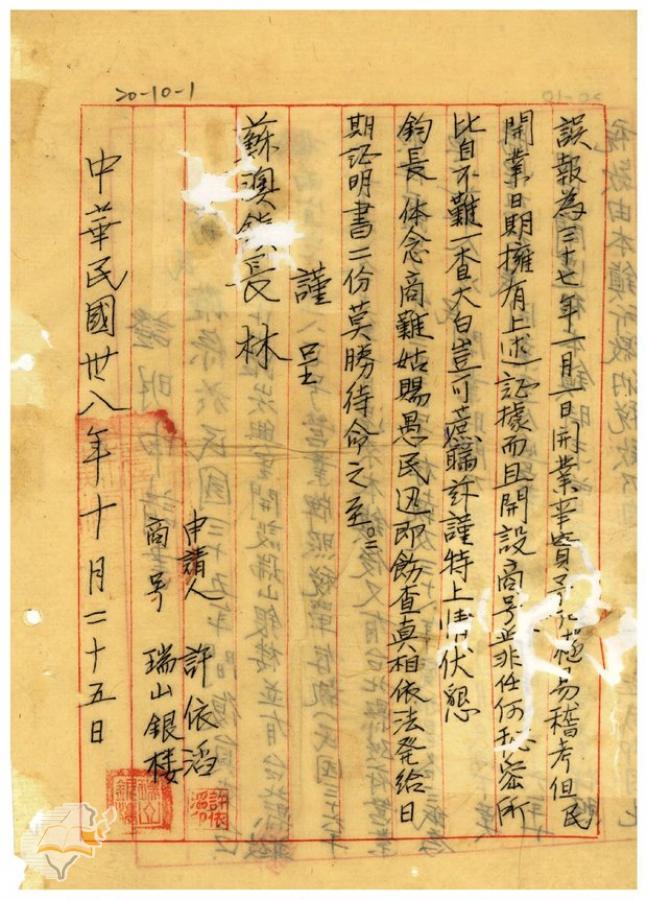 20-10-1
誤報為三十七年一月一日開業事實
易稽考但民
開業日期擁有上述証據而且開設商号並非任何秘密所
比自不難一查大白豈可蔗瞞許謹特上情伏懇
鈞長 体念商難姑賜愚民迅即飭查真相依法発給日
期証明書二份莫勝待命之至
謹呈
蘇澳鎮長 林
申請人 許依滔
商号 瑞山銀楼
中華民國卅八年十月二十五日